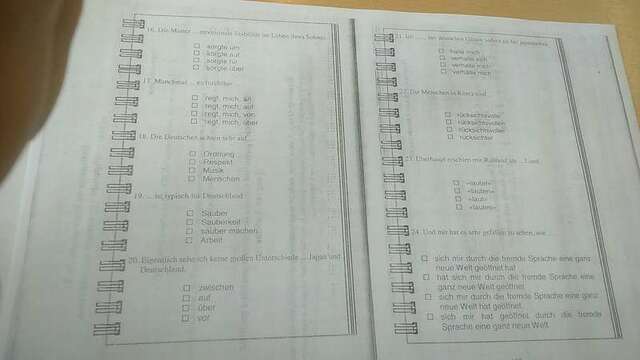 16. Die Mutter ... emotionale Stabilität im Leben ihres Sohnes.
☐ sorgte um
☐ sorgte auf
☐ sorgte für
☐ sorgte über
17. Manchmal ...
☐ regt, mich, an
☐ regt, mich, auf
☐ regt, mich, von
☐ regt, mich, über
18. Die Deutschen achten sehr auf
☐ Ordnung
☐ Respekt
☐ Musik
☐ Menschen
19. ... ist typisch für Deutschland.
☐ Sauber
☐ Sauberkeit
☐ sauber machen
☐ Arbeit
20. Eigentlich sehe ich keine großen Unterschiede ... Japan und
Deutschland.
☐ zwischen
☐ auf
☐ über
☐ vor
21. Ich ... bei deutschen Gästen anders als bei japanischen.
☐ halte mich
☐ verhalte sich
☐ verhalte mich
☐ verhielte mich
22. Die Menschen in Korea sind
☐ rücksichtsvolle
☐ rücksichtsvollen
☐ rücksichtsvoller
☐ rücksichter
23. Überhaupt erschien mir Russland als ... Land.
☐ «lautet»
☐ «lauten»
☐ «laut»
☐ «lautes»
24. Und mir hat es sehr gefallen zu sehen, wie
☐ sich mir durch die fremde Sprache eine ganz
neue Welt geöffnet hat
☐ hat sich mir durch die fremde Sprache eine
ganz neue Welt geöffnet
☐ sich mir durch die fremde Sprache eine ganz
neue Welt hat geöffnet.
☐ sich mir hat geöffnet durch die fremde
Sprache eine ganz neue Welt